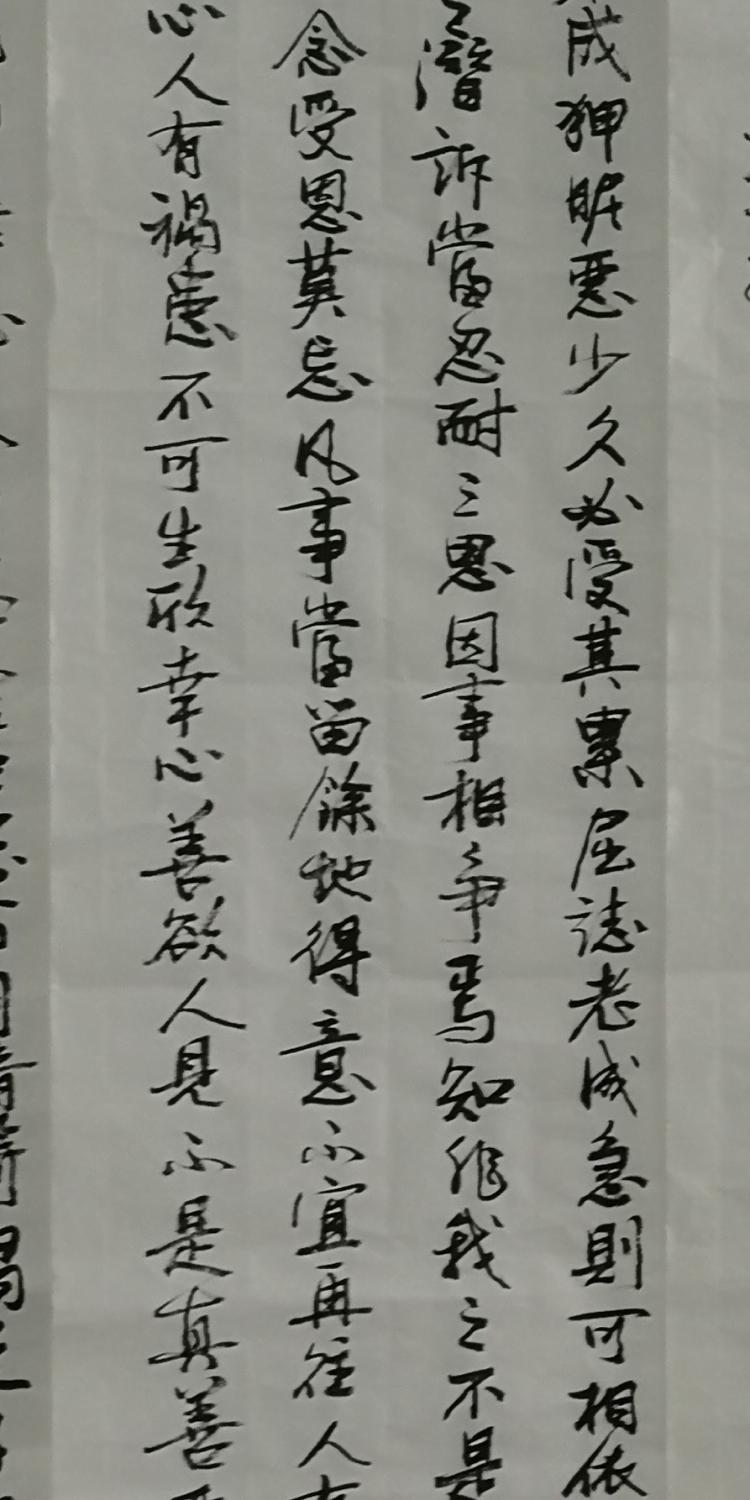 成狎昵惡少久必受其累屈誌老成急則可相依
譖訴當忍耐三思因事相爭焉知非我之不是
念受恩莫忘凡事當留餘地得意不宜再往人有
心人有禍患不可生欣幸心善欲人見不是真善